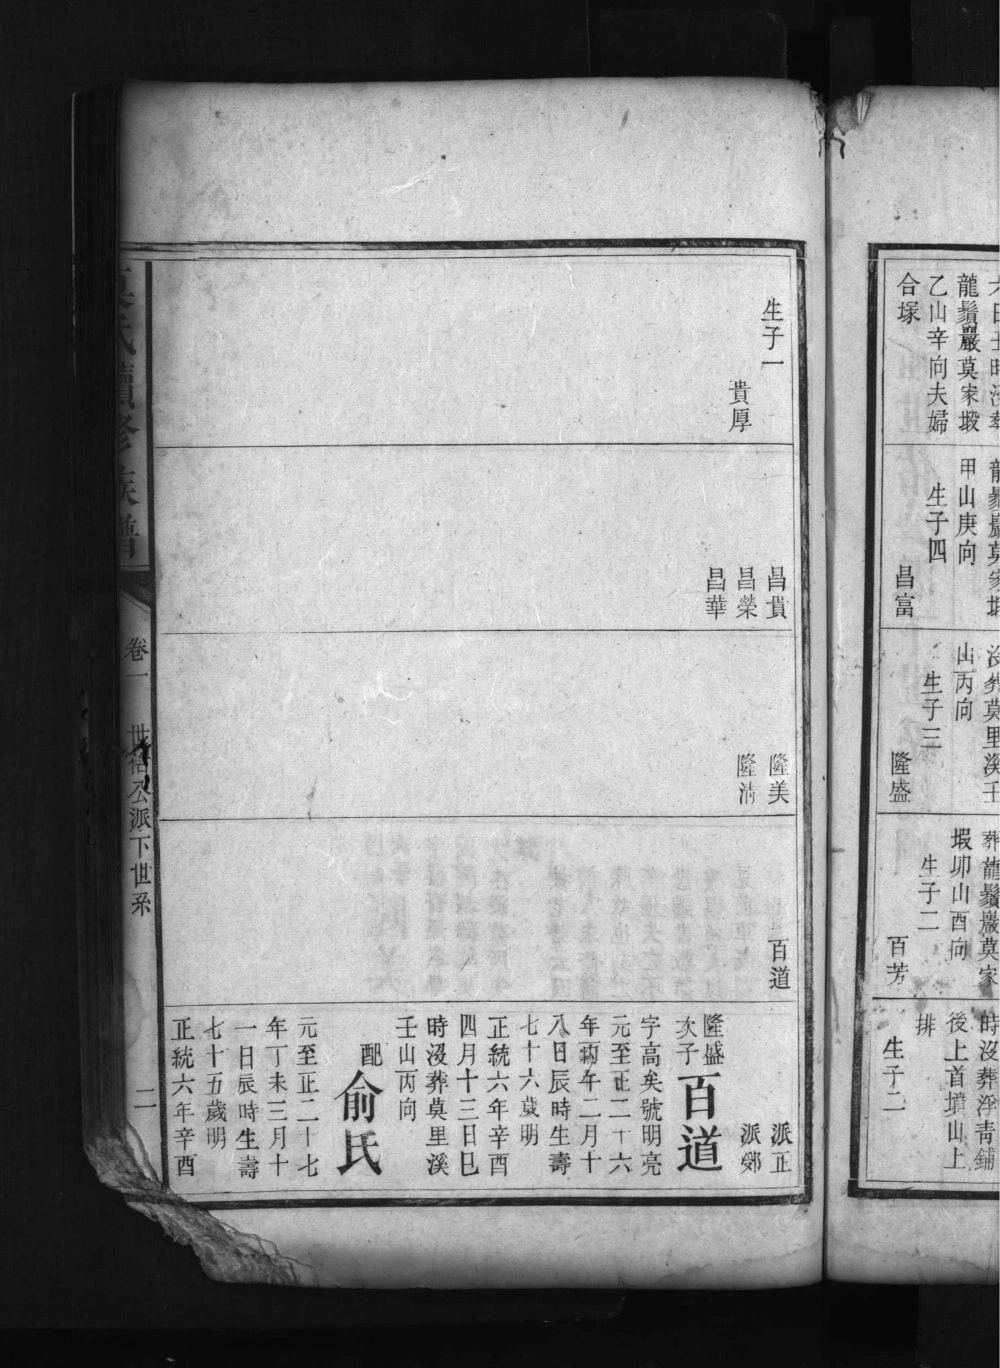 龍鬚巖莫家塅
乙山辛向夫婦
合塚
甲山庚向
生子四
昌富
沒葬莫里溪壬
山丙向
生子三
隆盛
葬龍鬚巖莫家
塅卯山酉向
生子二
百芳
時沒葬浮青鋪
後上首墳山上
排
生子二
生子一
貴厚
昌貴
昌榮
昌華
隆美
隆清
百道
派正
派鄉
隆盛
次子
百道
字高矣號明亮
元至正二十六
年丙午二月十
八日辰時生壽
七十六歲明
正統六年辛酉
四月十三日巳
時沒葬莫里溪
壬山丙向
配
俞氏
元至正二十七
年丁未三月十
一日辰時生壽
七十五歲明
正統六年辛酉
氏續修族譜
卷一
公派下世系
二